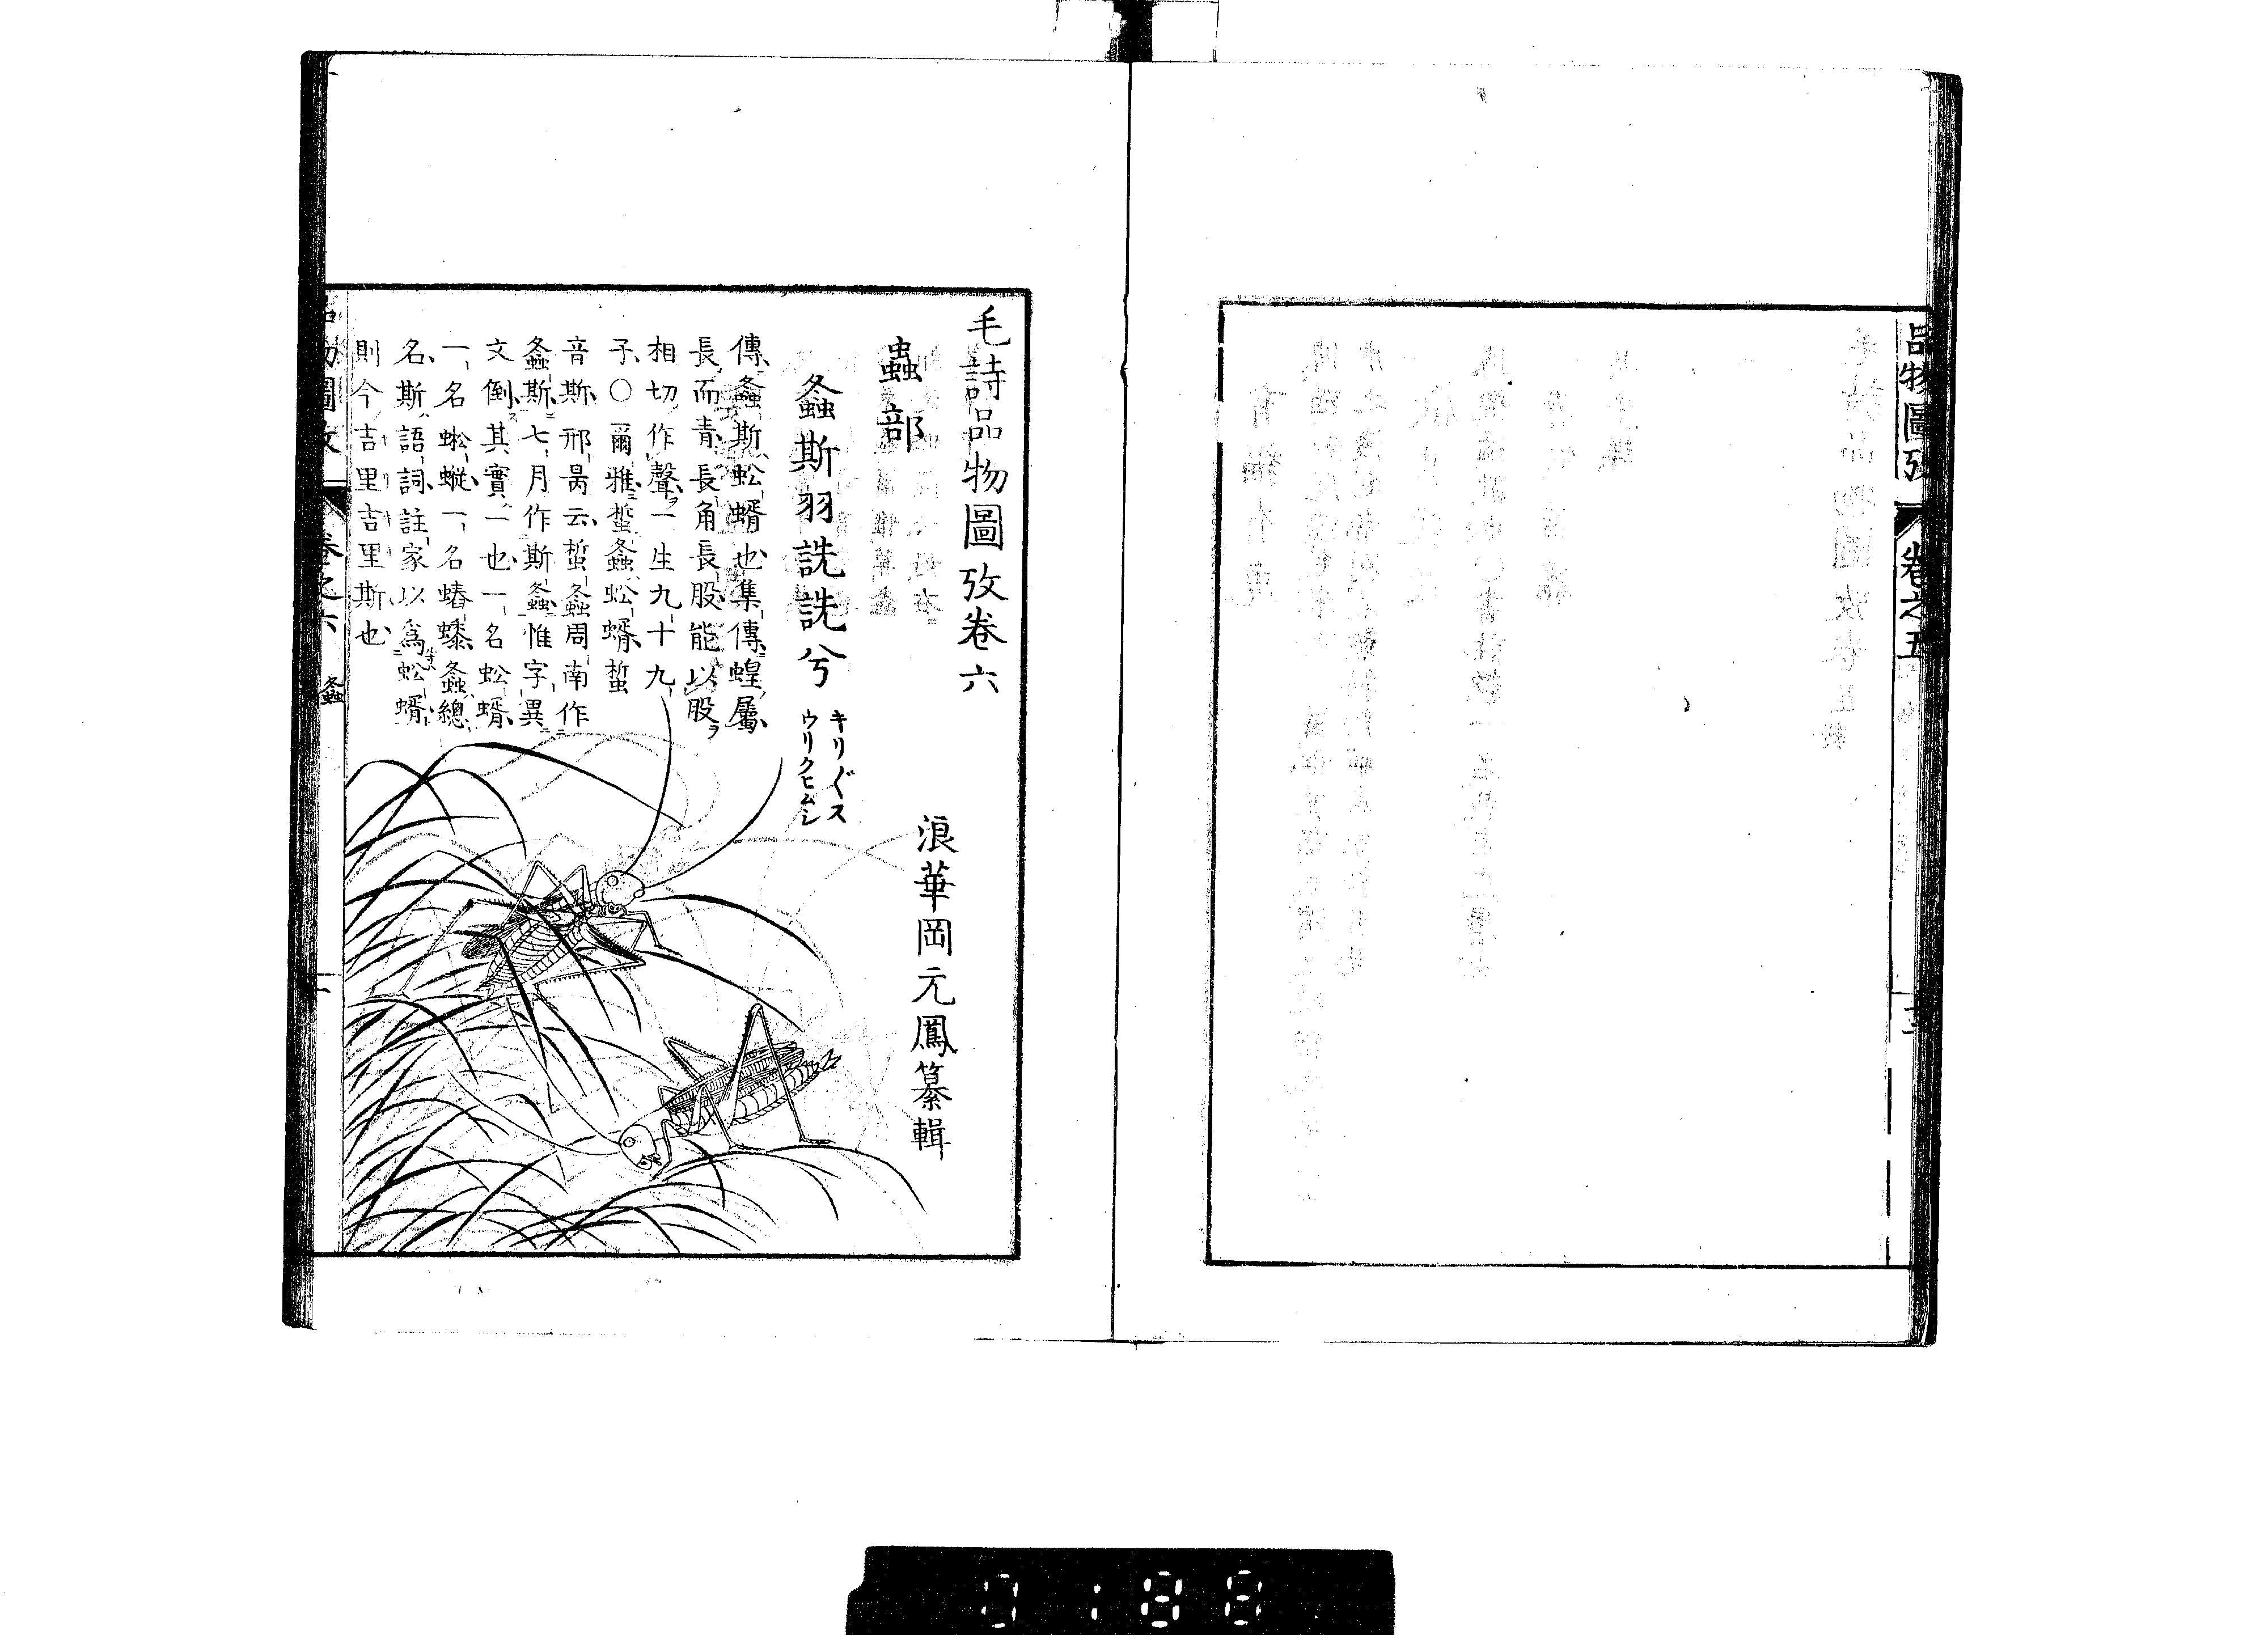 品物圖攷 卷之五
毛詩品物圖攷卷六
浪華岡元鳳纂輯
蟲部
螽斯羽詵詵兮
キリ〴〵ス
ウリクヒムシ
傳螽斯蚣蝑也集傳蝗屬
長而青長角長股能以股ヲ
相切作聲ヲ一生九十九
子〇爾雅蜤螽蚣蝑蜤
音斯邢昺云蜤螽周南作
螽斯七月作斯螽惟字異
文倒其實一也一名蚣蝑
一名蜙蝑一名蝽𧐍螽總
名斯語詞註家以爲蚣蝑
則今吉里吉里斯也
品物圖攷 卷之六 螽 一
0188